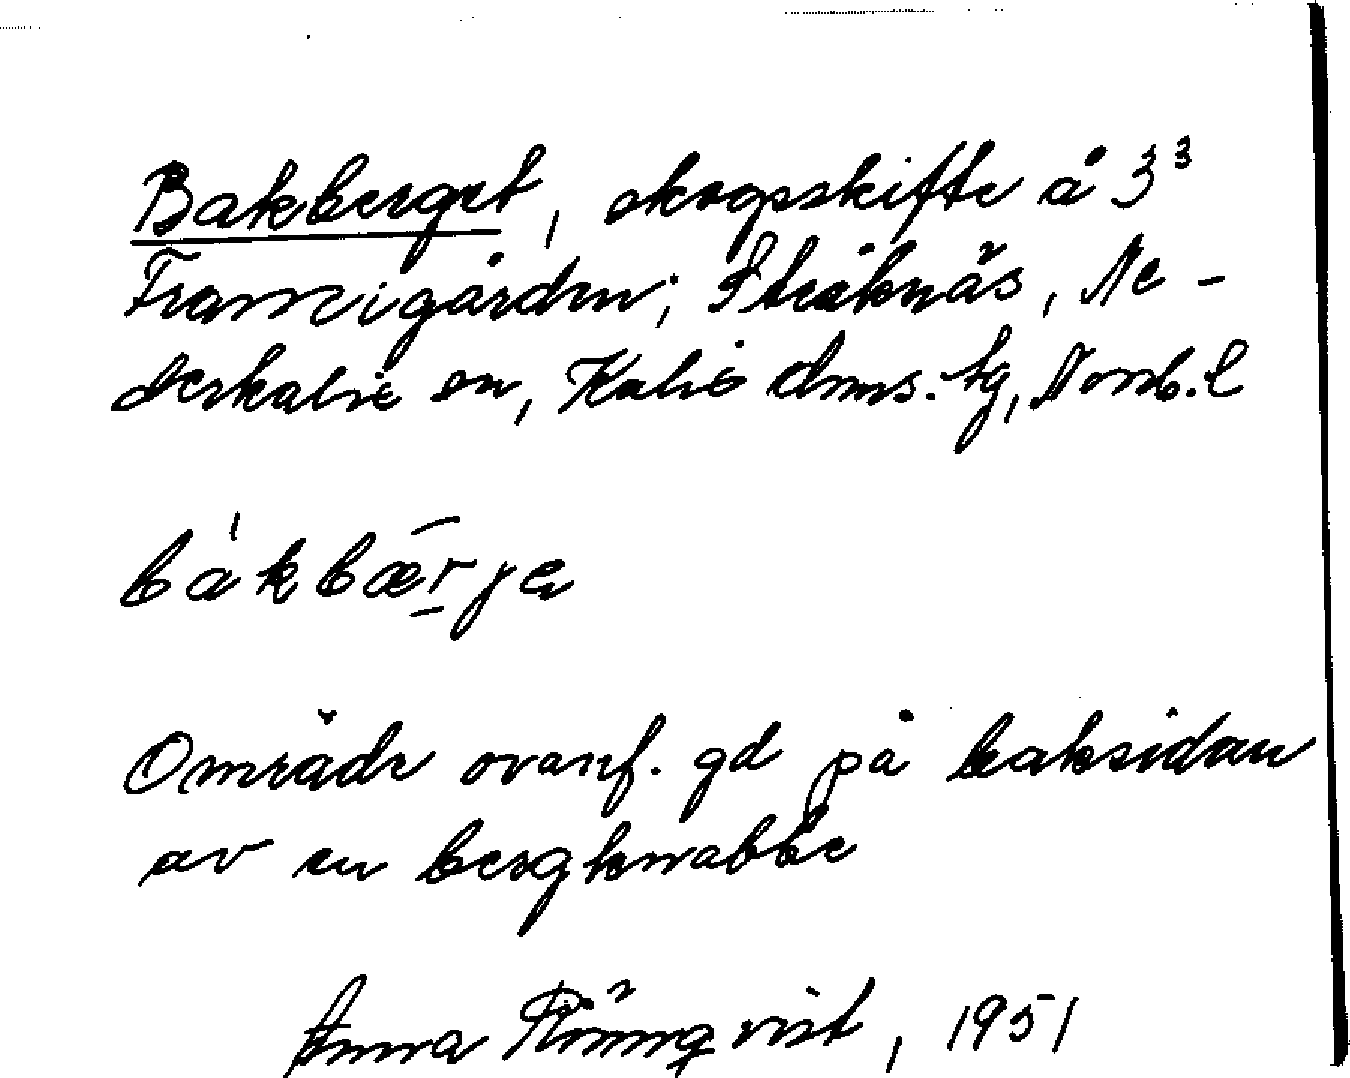 Bakberget, skogsskifte å 3³
Franzigården, Stråknäs, Ne-
derkalix sn, Kalix dmns. tg, Norrb. l
bákbærje
Område ovanf. gd på baksidan
av en bergknabbe
Anna Rönnqvist, 1951